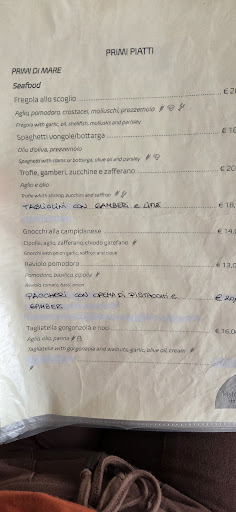 PRIMI PIATTI
PRIMI DI MARE
Seafood
Fregola allo scoglio
Aglio, pomodoro, crostacei, molluschi, prezzemolo
Fregola with garlic, oil, shellfish, mollusks and parsley
Spaghetti vongole/bottarga
Olio d'oliva, prezzemolo
Spaghetti with clams or bottarga, olive oil and parsley
Trofie, gamberi, zucchine e zafferano € 20
Aglio e olio
Trofie with shrimp, zucchini and saffron
TAGLIOLINI CON GAMBERI e LIME € 18,
Gnocchi alla campidanese € 14,
Cipolla, aglio, zafferano,
Gnocchi with onion, garlic, saffron and
Raviolo pomodoro € 13,0
Pomodoro, basilico, cipolla
Raviolo, tomato, basil, onion
PACCHERI CON CREMA DI PISTACCHI e
GAMBERI
Tagliatella gorgonzola e noci € 16,00
Aglio, olio, panna
Tagliatella with gorgonzola and walnuts, garlic, blue oil, cream